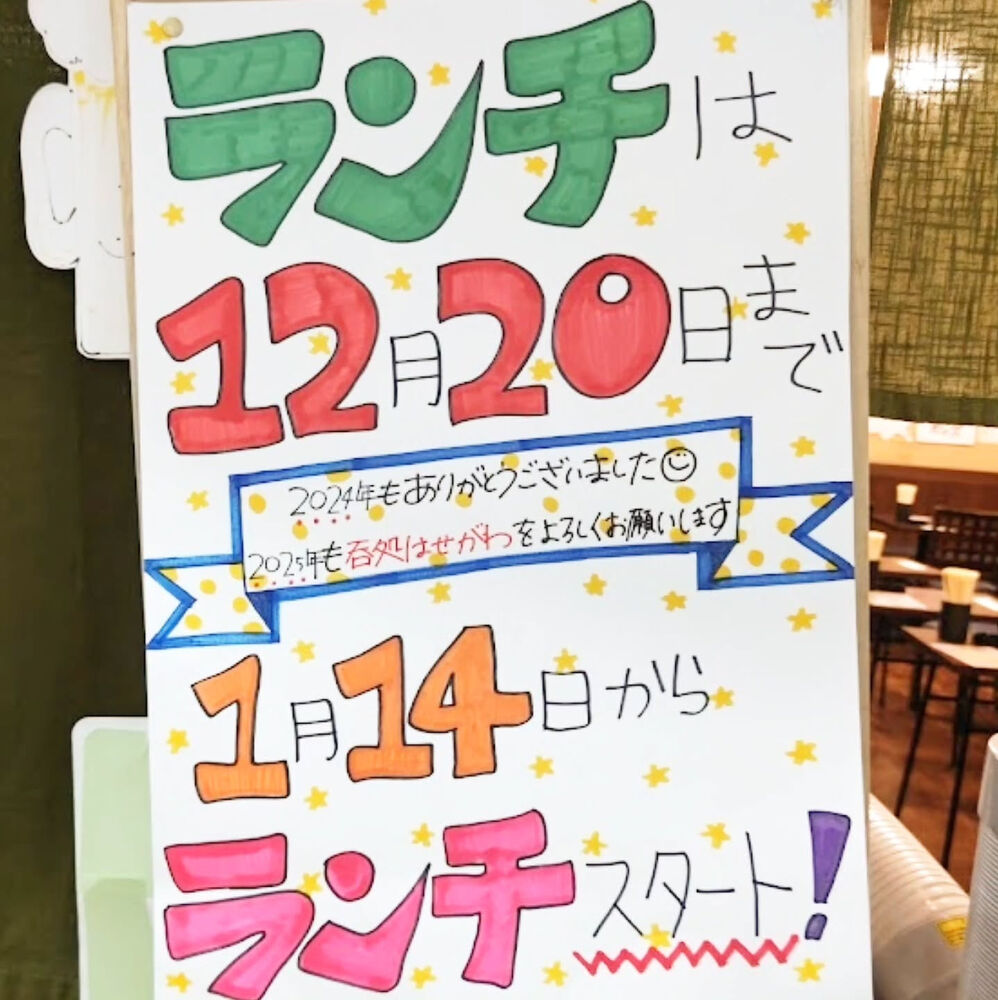 ランチは
12月20日まで
2024年もありがとうございました
2025年も呑処はせがわをよろしくお願いします
1月14日から
ランチスタート!